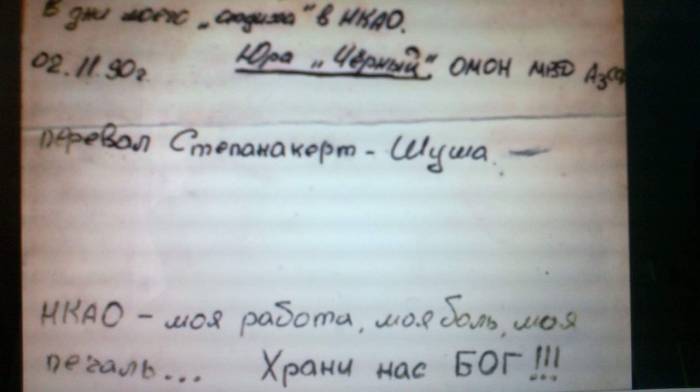 В дни моего „сидижа" в НКАО.
02.11.90г. Юра „Чёрный" ОМОН МВД АзССР
перевал Степанакерт - Шуша. —
НКАО - моя работа, моя боль, моя
печаль... Храни нас БОГ!!!